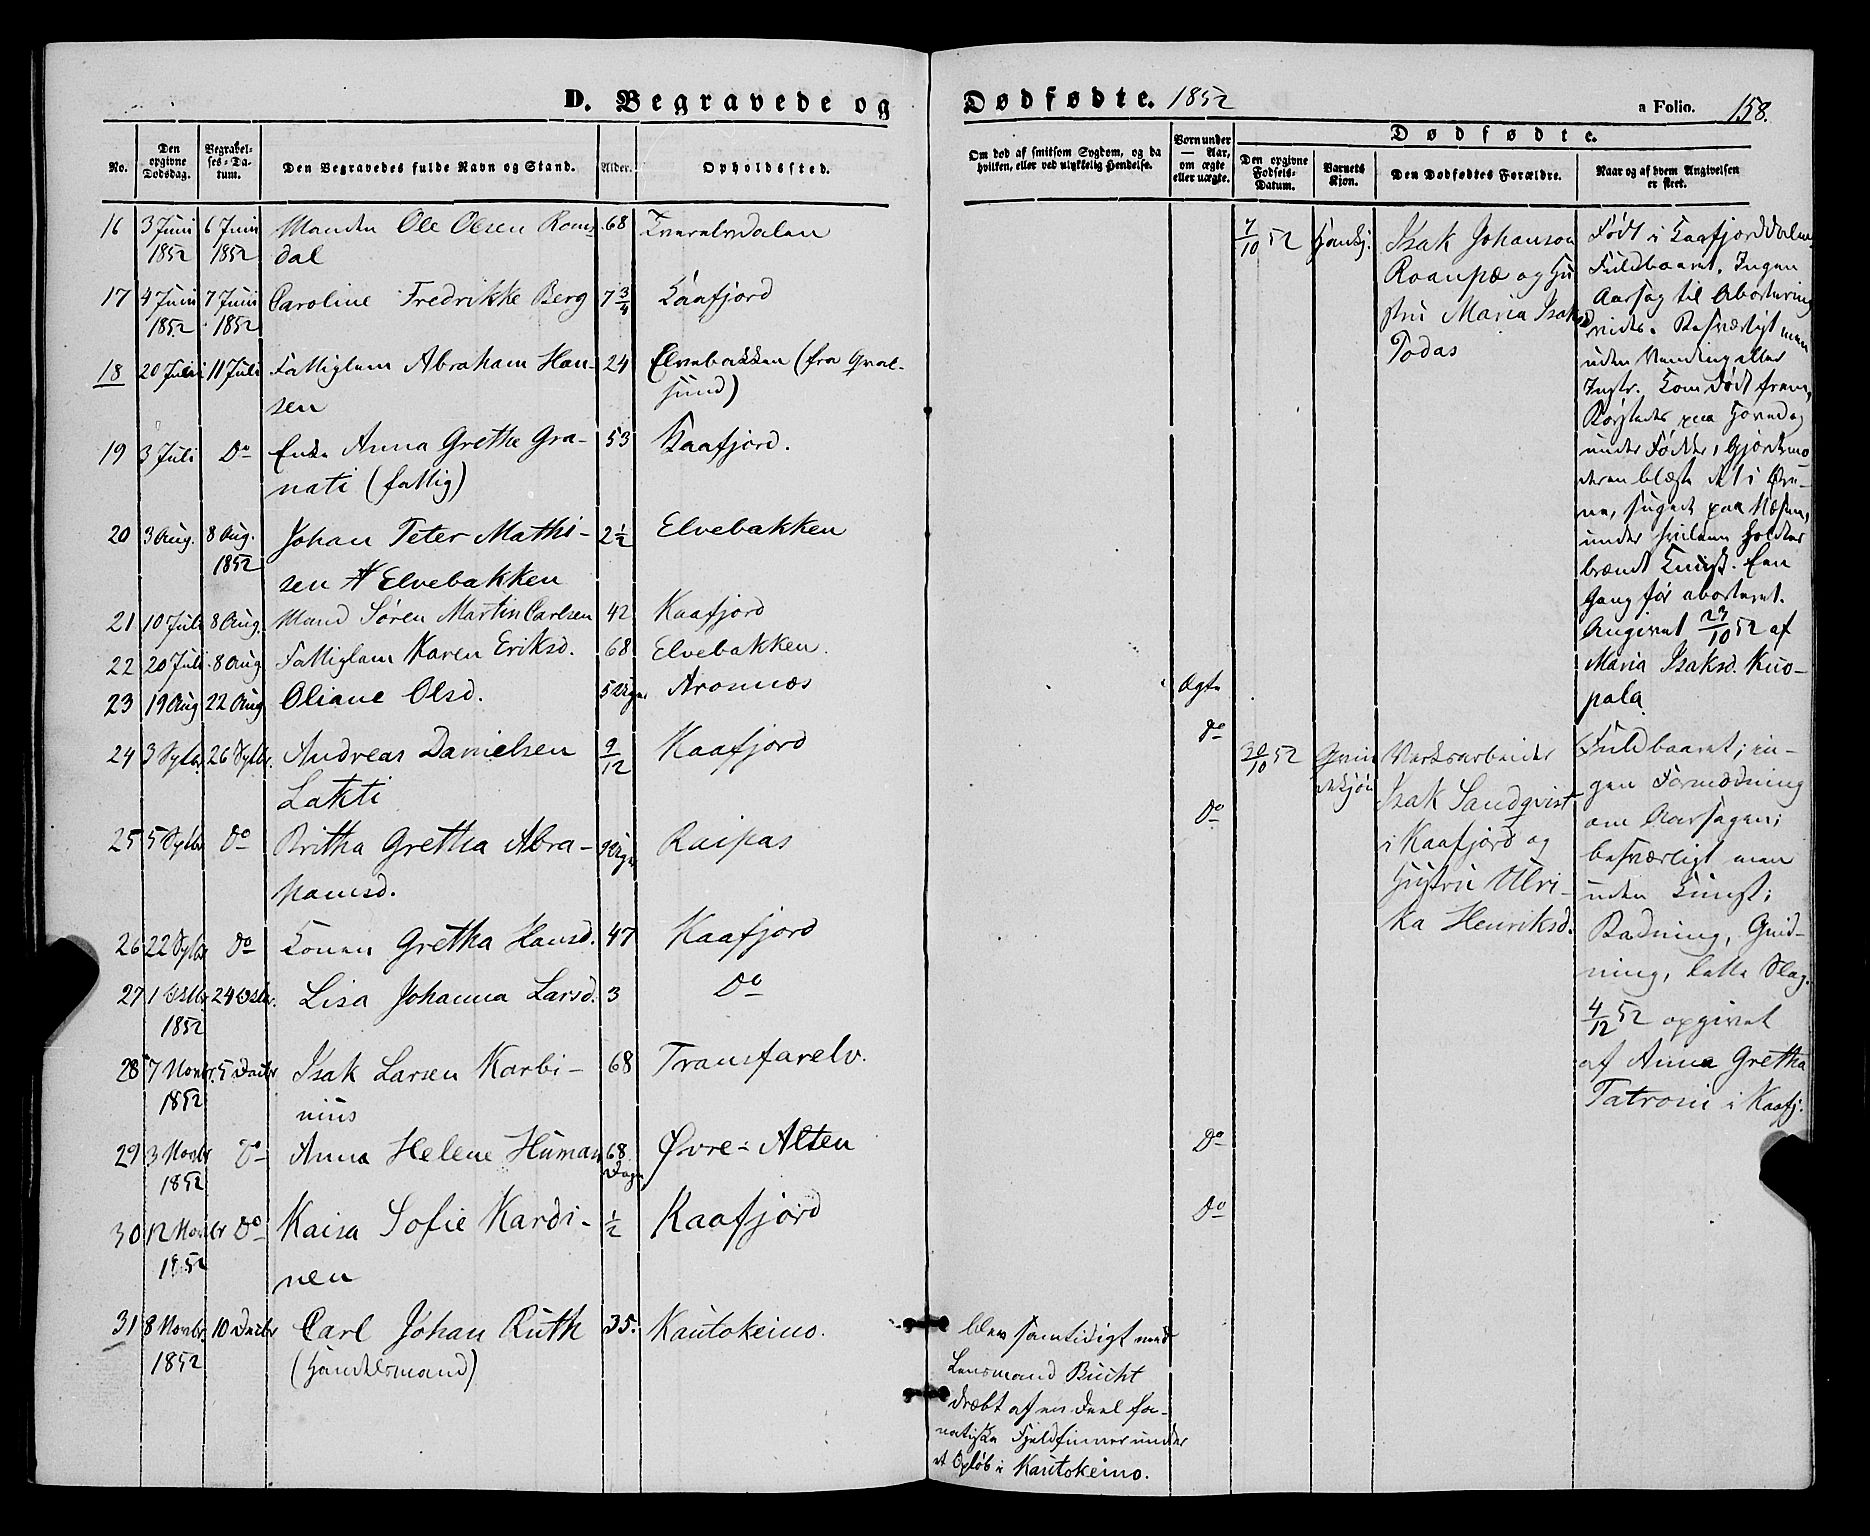 D. Begravede og
No.
Den opgivne Dødsdag.
Begravel-ses-Da-tum.
Den Begravedes fulde Navn og Stand.
Alder.
Opholdssted.
16 3 Juni 1852 6 Juni 1852 Manden Ole Olsen Roms- 68
dal
17 4 Juni 1852 7 Juni 1852 Caroline Fredrikke Berg 7 3/4 Kaafjord
18 20 Juli 11 Juli Fattiglem Abraham Han- 24 Elvebakken (fra Qval-
sen sund)
19 3 Juli Do Enke Anna Grethe Gra- 53 Kaafjord.
nati (fattig)
20 3 Aug. 8 Aug. 1852 Johan Peter Mathi- 2 1/2 Elvebakken
sen Elvebakken
21 10 Juli 8 Aug. Mand Søren Martin Carlsen 42 Kaafjord
22 20 Juli 8 Aug. Fattiglem Karen Eriksd. 68 Elvebakken.
23 19 Aug 22 Aug Oliane Olsd. 5 Uger Aronnæs
24 3 Sptbr. 26 Sptbr. Andreas Danielsen 9/12 Kaafjord
Lakti
25 5 Sptbr Do Britha Gretha Abra- 9 Uger Raipas
hamsd.
26 22 Sptbr Do Konen Gretha Hansd. 47 Kaafjord
27 1 Octbr 1852 24 Octbr. Lisa Johanna Larsd. 3 Do
28 7 Novbr. 1852 5 Decbr Isak Larsen Karbi- 68 Transfarelv.
nius
29 3 Novbr 1852 Do Anna Helene Human 68 Dage Øvre-Alten
30 12 Novbr 1852 Do Kaisa Sofie Kardi- 1/2 Kaafjord
nen
31 8 Novbr 1852 10 Decbr Carl Johan Ruth 35. Kautokeino.
(Handelsmand)
Dødfødte. 1852
a Folio. 158.
Om død af smitsom Sygdom, og da
hvilken, eller ved ulykkelig Hendelse.
Børn under
— Aar,
om ægte
eller uægte.
Dødfødte.
Den opgivne
Fødsels-
Datum.
Barnets
Kjøn.
Den Dødfødtes Forældre.
Naar og af hvem Angivelsen
er skeet.
7/10 52 Hankj. Isak Johanson
og Hu
stru Maria Isaksd
Todas
Født i Kaafjorddalen,
Fuldbaaret, Ingen
Aarsag til Abortering
vides. Besværligt men
uden Vending eller
Instr. Kom dødt frem,
paa Hoved og
under Fødder, Gjordemo
deren blæste det i Øre-
ne, sugede paa Næsen,
under holdtes
brændt Een
Gang før aborteret.
Angivet 23/10 52 af
Maria Isaksd. Kuo-
pala
Ægte
Do
Do
30/10 52 Qvin
dekjøn
Verksarbeider
Isak Sandqvist
i Kaafjord og
Hustru Ulri-
ka Henriksd.
Fuldbaaret; in-
gen Formodning
om Aarsagen;
besværligt men
uden Kunst;
Badning, Gnid-
ning, lette Slag.
4/12 52 opgivet
af Anna Gretha
Tatroni i Kaafj.
Do
Do
blev samtidigt med
Lensmand Bucht
dræbt af en Deel fa-
natiske Fjeldfinner under
et Opløb i Kautokeino.